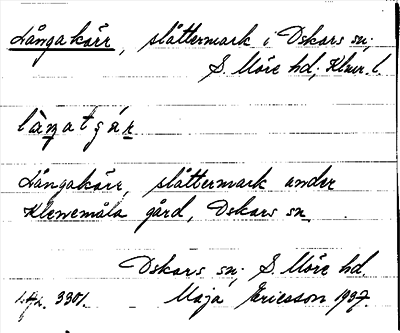 Långakärr, slåttermark i Oskars sn;
S. Möre hd; Klmr. l.
Långakärr, slåttermark under
Klenemåla gård, Oskars sn
Oskars sn; S. Möre hd
3301. Maja Ericsson 1937.